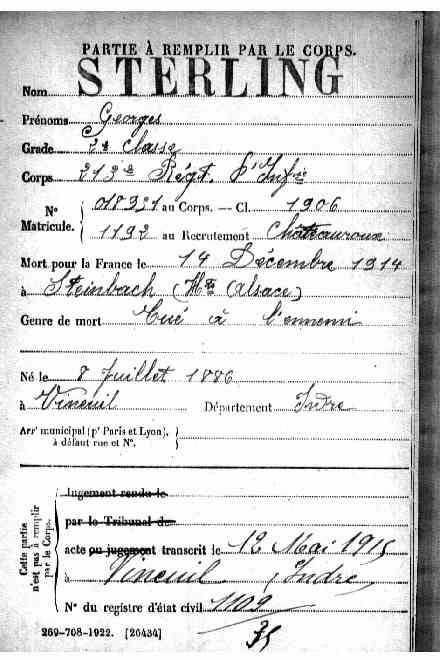 PARTIE À REMPLIR PAR LE CORPS.
Nom STERLING
Prénoms Georges
Grade 2e classe
Corps 213e Régt. d'Infie
N° 018321 au Corps. — Cl. 1906
Matricule. 1192 au Recrutement Châteauroux
Mort pour la France le 14 Décembre 1914
à Steinbach (Hte Alsace)
Genre de mort Tué à l'ennemi
Né le 8 Juillet 1886
à Vineuil Département Indre
Arrt municipal (pr Paris et Lyon),
à défaut rue et N°.
Cette partie n'est pas à remplir par le Corps.
Jugement rendu le
par le Tribunal de
acte ou jugement transcrit le 12 Mai 1915
à Vineuil (Indre)
N° du registre d'état civil 1109
35
269-708-1922. [26434]